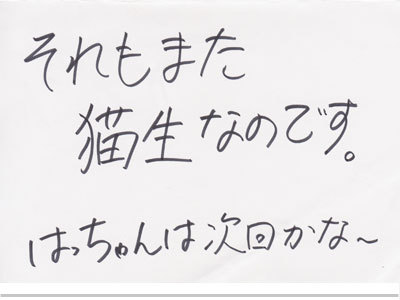 それもまた
猫生なのです。
はっちゃんは次回かな～